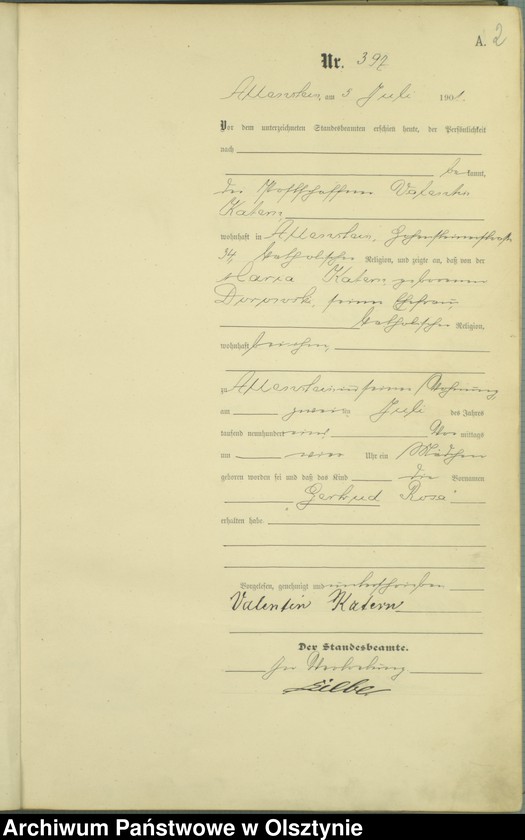 A. 2
Nr. 397
Allenstein, am 5 Juli 1901.
Vor dem unterzeichneten Standesbeamten erschien heute, der Persönlichkeit
nach
bekannt,
der Postschaffner Valentin
Katern,
wohnhaft in Allenstein, Hohensteinerstraße
34, katholischer Religion, und zeigte an, daß von der
Maria Katern geborenen
seiner Ehefrau,
katholischer Religion,
wohnhaft bei ihm,
zu Allenstein in seiner Wohnung,
am zweiten Juli des Jahres
tausend neunhundert eins Vormittags
um vier Uhr ein Mädchen
geboren worden sei und daß das Kind die Vornamen
Gertrud Rosa
erhalten habe.
Vorgelesen, genehmigt und unterschrieben
Valentin Katern
Der Standesbeamte.
In Vertretung
Archiwum Państwowe w Olsztynie